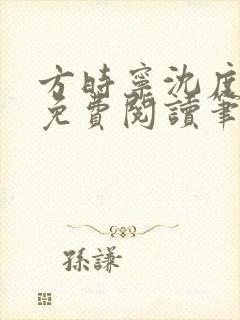 方時寧沈度
免費閱讀筆
孫謙